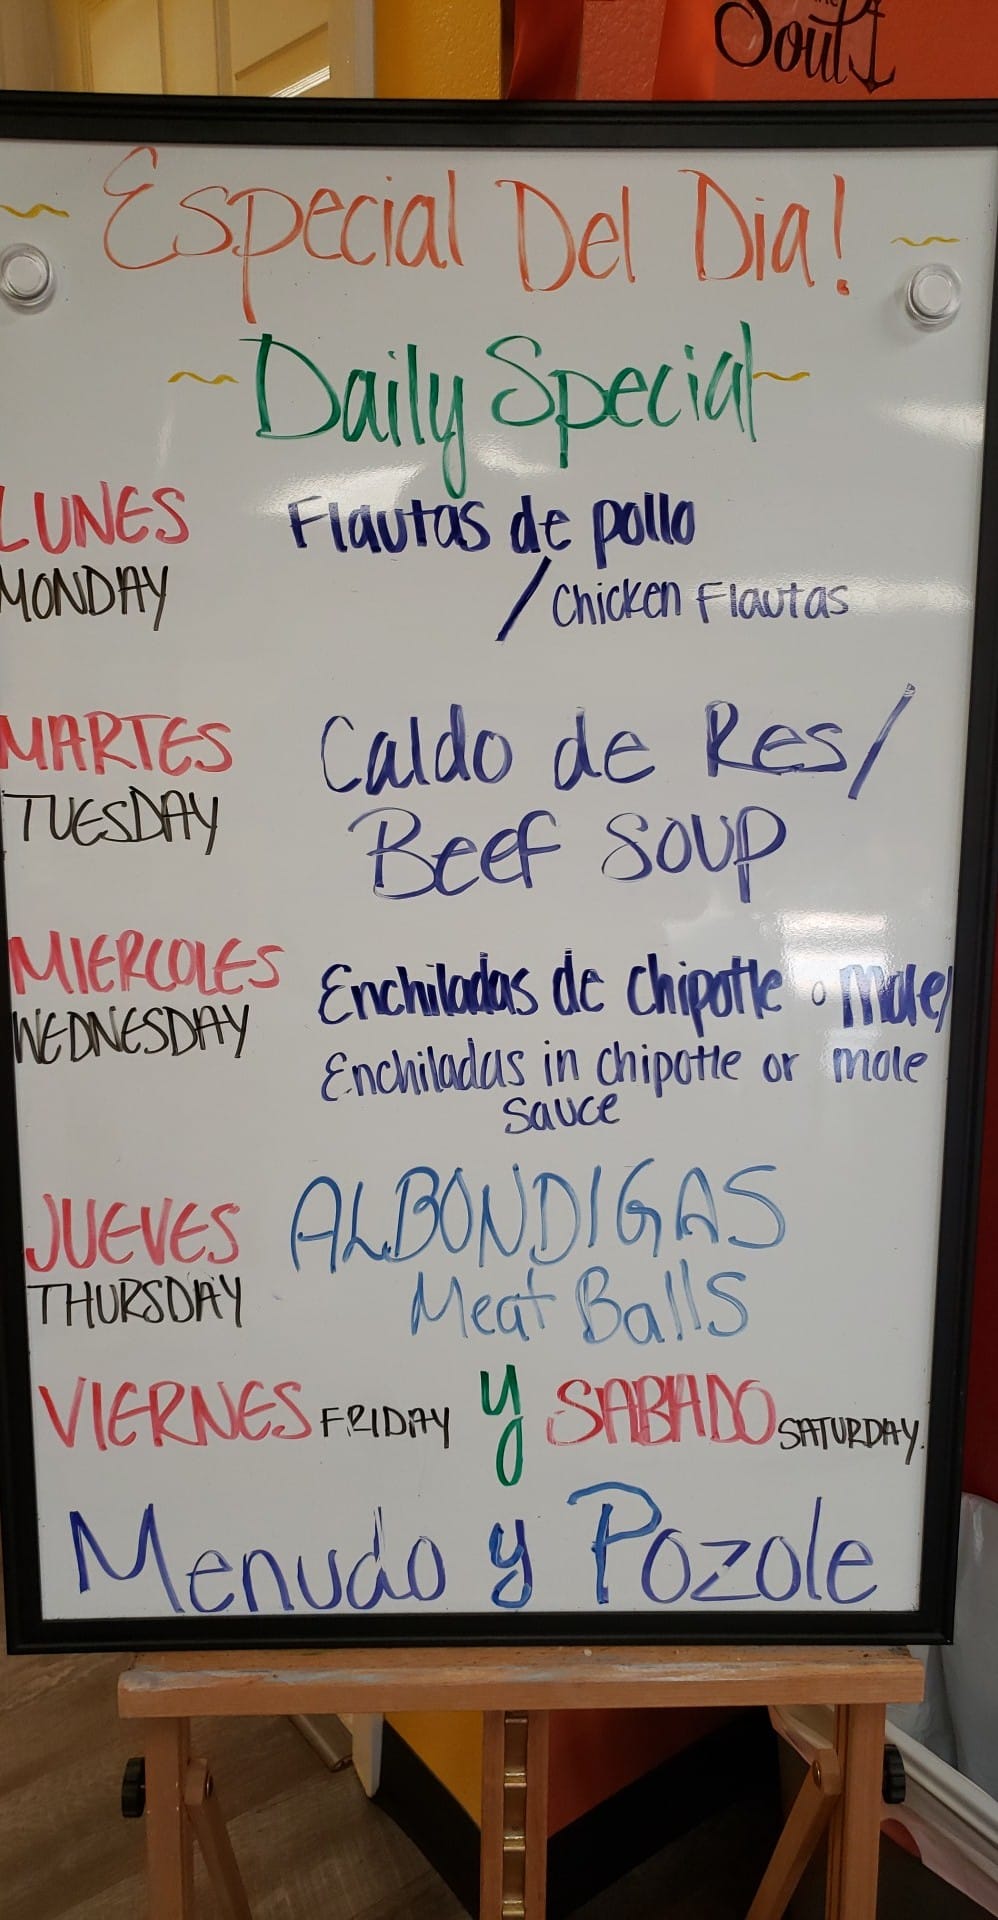 Soul
Especial Del Dia!
Daily Special
LUNES Flautas de pollo
MONDAY / Chicken Flautas
MARTES Caldo de Res/
TUESDAY Beef SOUP
MIERCOLES Enchiladas de chipotle o mole/
WEDNESDAY Enchiladas in chipotle or mole
sauce
JUEVES ALBONDIGAS
THURSDAY Meat Balls
VIERNES FRIDAY y SABADO SATURDAY.
Menudo y Pozole